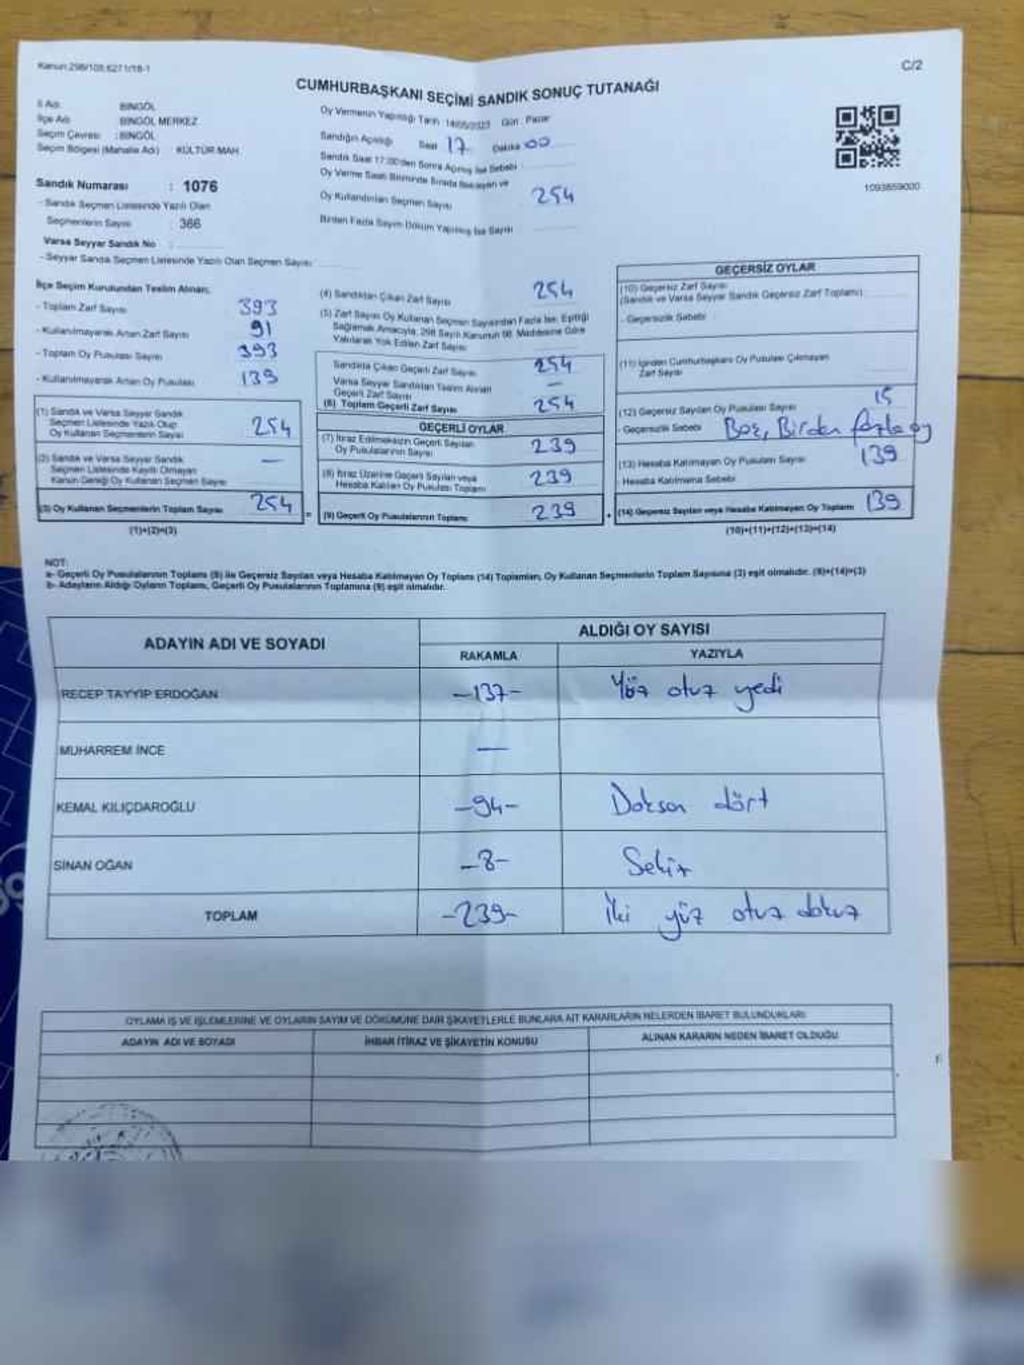 Kanun:298/105,6271/18-1
C/2
CUMHURBAŞKANI SEÇİMİ SANDIK SONUÇ TUTANAĞI
İl Adı : BİNGÖL
İlçe Adı : BİNGÖL MERKEZ
Seçim Çevresi : BİNGÖL
Seçim Bölgesi (Mahalle Adı) : KÜLTÜR MAH.
Sandık Numarası : 1076
- Sandık Seçmen Listesinde Yazılı Olan
Seçmenlerin Sayısı : 366
Varsa Seyyar Sandık No :
- Seyyar Sandık Seçmen Listesinde Yazılı Olan Seçmen Sayısı
Oy Vermenin Yapıldığı Tarih : 14/05/2023 Gün : Pazar
Sandığın Açıldığı Saat 17 Dakika 00
Sandık Saat 17:00'den Sonra Açılmış İse Sebebi :
Oy Verme Saati Bitiminde Sırada Bekleyen ve
Oy Kullandırılan Seçmen Sayısı 254
Birden Fazla Sayım Döküm Yapılmış İse Sayısı
1093859000
İlçe Seçim Kurulundan Teslim Alınan;
- Toplam Zarf Sayısı 393
- Kullanılmayarak Artan Zarf Sayısı 91
- Toplam Oy Pusulası Sayısı 393
- Kullanılmayarak Artan Oy Pusulası 139
(1) Sandık ve Varsa Seyyar Sandık
Seçmen Listesinde Yazılı Olup
Oy Kullanan Seçmenlerin Sayısı 254
(2) Sandık ve Varsa Seyyar Sandık
Seçmen Listesinde Kayıtlı Olmayan
Kanun Gereği Oy Kullanan Seçmen Sayısı —
(3) Oy Kullanan Seçmenlerin Toplam Sayısı 254 =
(1)+(2)=(3)
(4) Sandıktan Çıkan Zarf Sayısı 254
(5) Zarf Sayısı Oy Kullanan Seçmen Sayısından Fazla İse, Eşitliği
Sağlamak Amacıyla, 298 Sayılı Kanunun 98. Maddesine Göre
Yakılarak Yok Edilen Zarf Sayısı
Sandıkta Çıkan Geçerli Zarf Sayısı 254
Varsa Seyyar Sandıktan Teslim Alınan
Geçerli Zarf Sayısı —
(6) Toplam Geçerli Zarf Sayısı 254
GEÇERLİ OYLAR
(7) İtiraz Edilmeksizin Geçerli Sayılan
Oy Pusulalarının Sayısı 239
(8) İtiraz Üzerine Geçerli Sayılan veya
Hesaba Katılan Oy Pusulası Toplamı 239
(9) Geçerli Oy Pusulalarının Toplamı 239 +
GEÇERSİZ OYLAR
(10) Geçersiz Zarf Sayısı
(Sandık ve Varsa Seyyar Sandık Geçersiz Zarf Toplamı)
- Geçersizlik Sebebi :
(11) İçinden Cumhurbaşkanı Oy Pusulası Çıkmayan
Zarf Sayısı
(12) Geçersiz Sayılan Oy Pusulası Sayısı 15
- Geçersizlik Sebebi Boş, Birden fazla oy
(13) Hesaba Katılmayan Oy Pusulası Sayısı 139
- Hesaba Katılmama Sebebi
(14) Geçersiz Sayılan veya Hesaba Katılmayan Oy Toplamı 139
(10)+(11)+(12)+(13)=(14)
NOT:
a- Geçerli Oy Pusulalarının Toplamı (9) ile Geçersiz Sayılan veya Hesaba Katılmayan Oy Toplamı (14) Toplamları, Oy Kullanan Seçmenlerin Toplam Sayısına (3) eşit olmalıdır. (9)+(14)=(3)
b- Adayların Aldığı Oyların Toplamı, Geçerli Oy Pusulalarının Toplamına (9) eşit olmalıdır.
ADAYIN ADI VE SOYADI
ALDIĞI OY SAYISI
RAKAMLA YAZIYLA
RECEP TAYYİP ERDOĞAN -137- Yüz otuz yedi
MUHARREM İNCE —
KEMAL KILIÇDAROĞLU -94- Doksan dört
SİNAN OĞAN -8- Sekiz
TOPLAM -239- İki yüz otuz dokuz
OYLAMA İŞ VE İŞLEMLERİNE VE OYLARIN SAYIM VE DÖKÜMÜNE DAİR ŞİKAYETLERLE BUNLARA AİT KARARLARIN NELERDEN İBARET BULUNDUKLARI
ADAYIN ADI VE SOYADI İHBAR İTİRAZ VE ŞİKAYETİN KONUSU ALINAN KARARIN NEDEN İBARET OLDUĞU